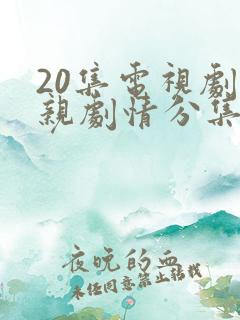 20集电視劇
親劇情分集
夜晚的血
未经同意禁止转载